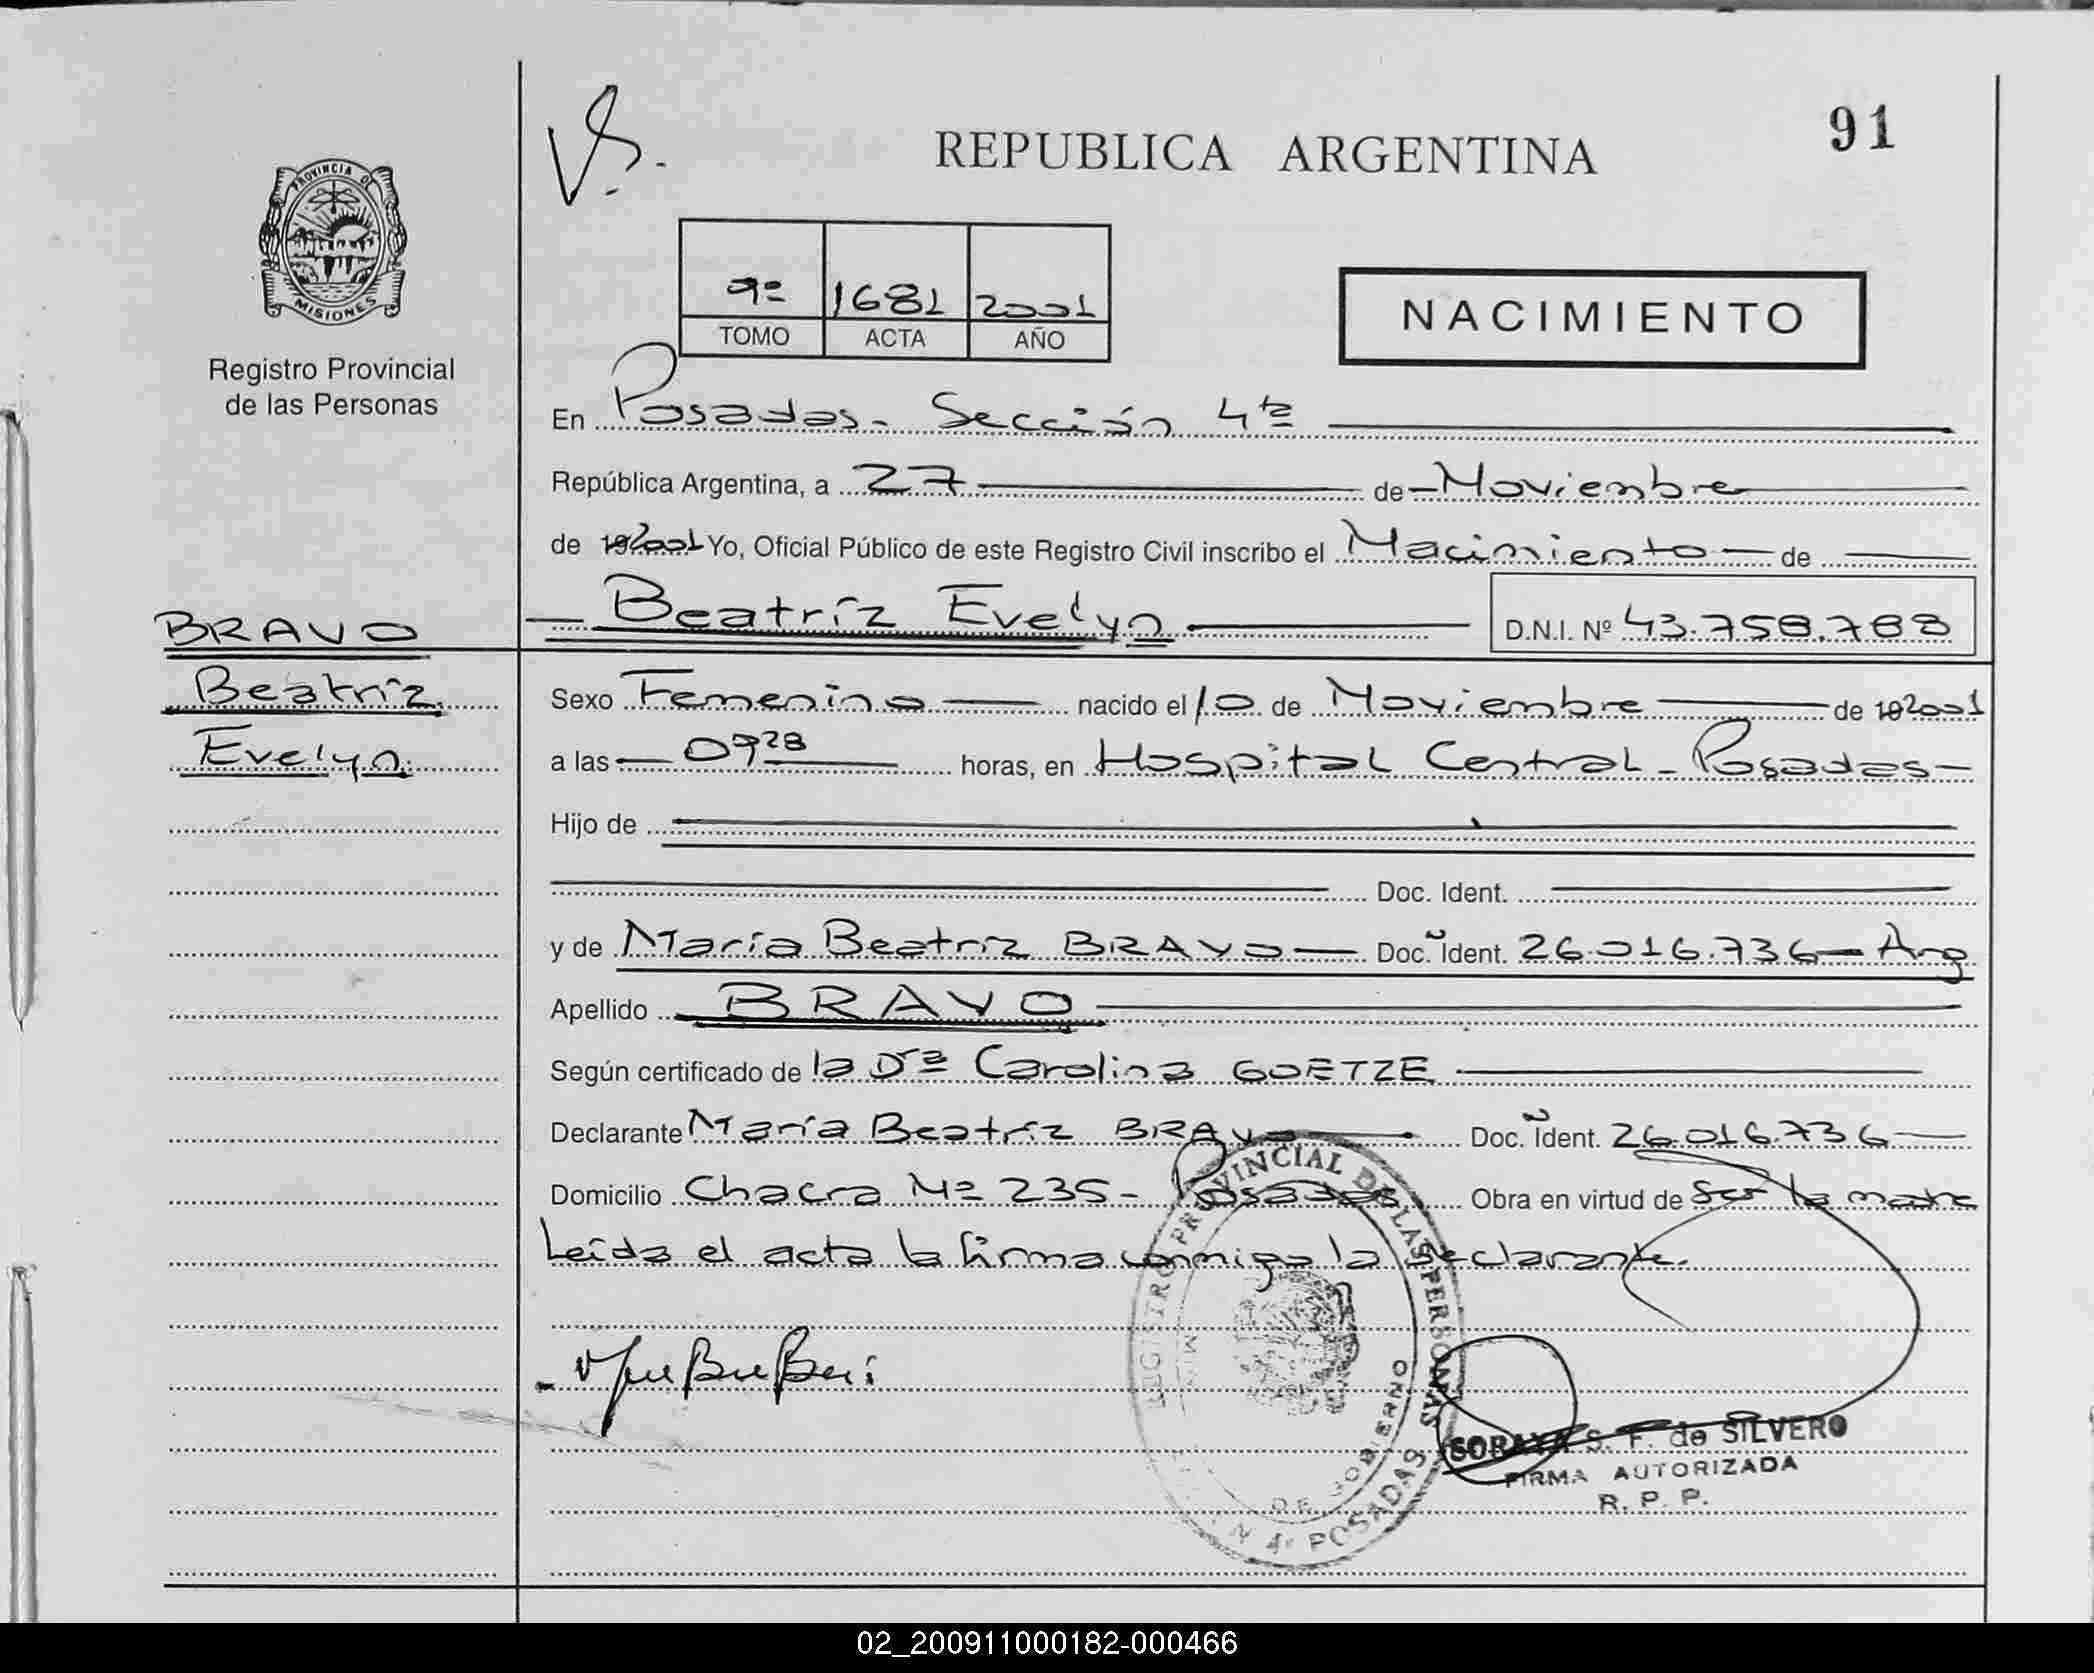 91
REPUBLICA ARGENTINA
PROVINCIA DE
MISIONES
Registro Provincial
de las Personas
9º 1681 2001
TOMO ACTA AÑO
NACIMIENTO
En Posadas - Sección 4ta
República Argentina, a 27 de Noviembre
de 192001 Yo, Oficial Público de este Registro Civil inscribo el Nacimiento de
BRAVO
Beatríz Evelyn D.N.I. Nº 43.758.788
Beatríz
Evelyn
Sexo Femenino nacido el 10 de Noviembre de 192001
a las 09 28 horas, en Hospital Central - Posadas -
Hijo de
Doc. Ident.
y de María Beatríz BRAVO Doc. Ident. 26.016.736 - Arg
Apellido BRAVO
Según certificado de la Dra Carolina GOETZE
Declarante María Beatríz BRAVO Doc. Ident. 26.016.736
Domicilio Chacra Nº 235 - Posadas Obra en virtud de Ser la madre
Leída el acta la firma conmigo la declarante.
REGISTRO PROVINCIAL DE LAS PERSONAS
DE GOBIERNO
4º POSADAS
SORAYA S. F. de SILVERO
FIRMA AUTORIZADA
R. P. P.
02_200911000182-000466